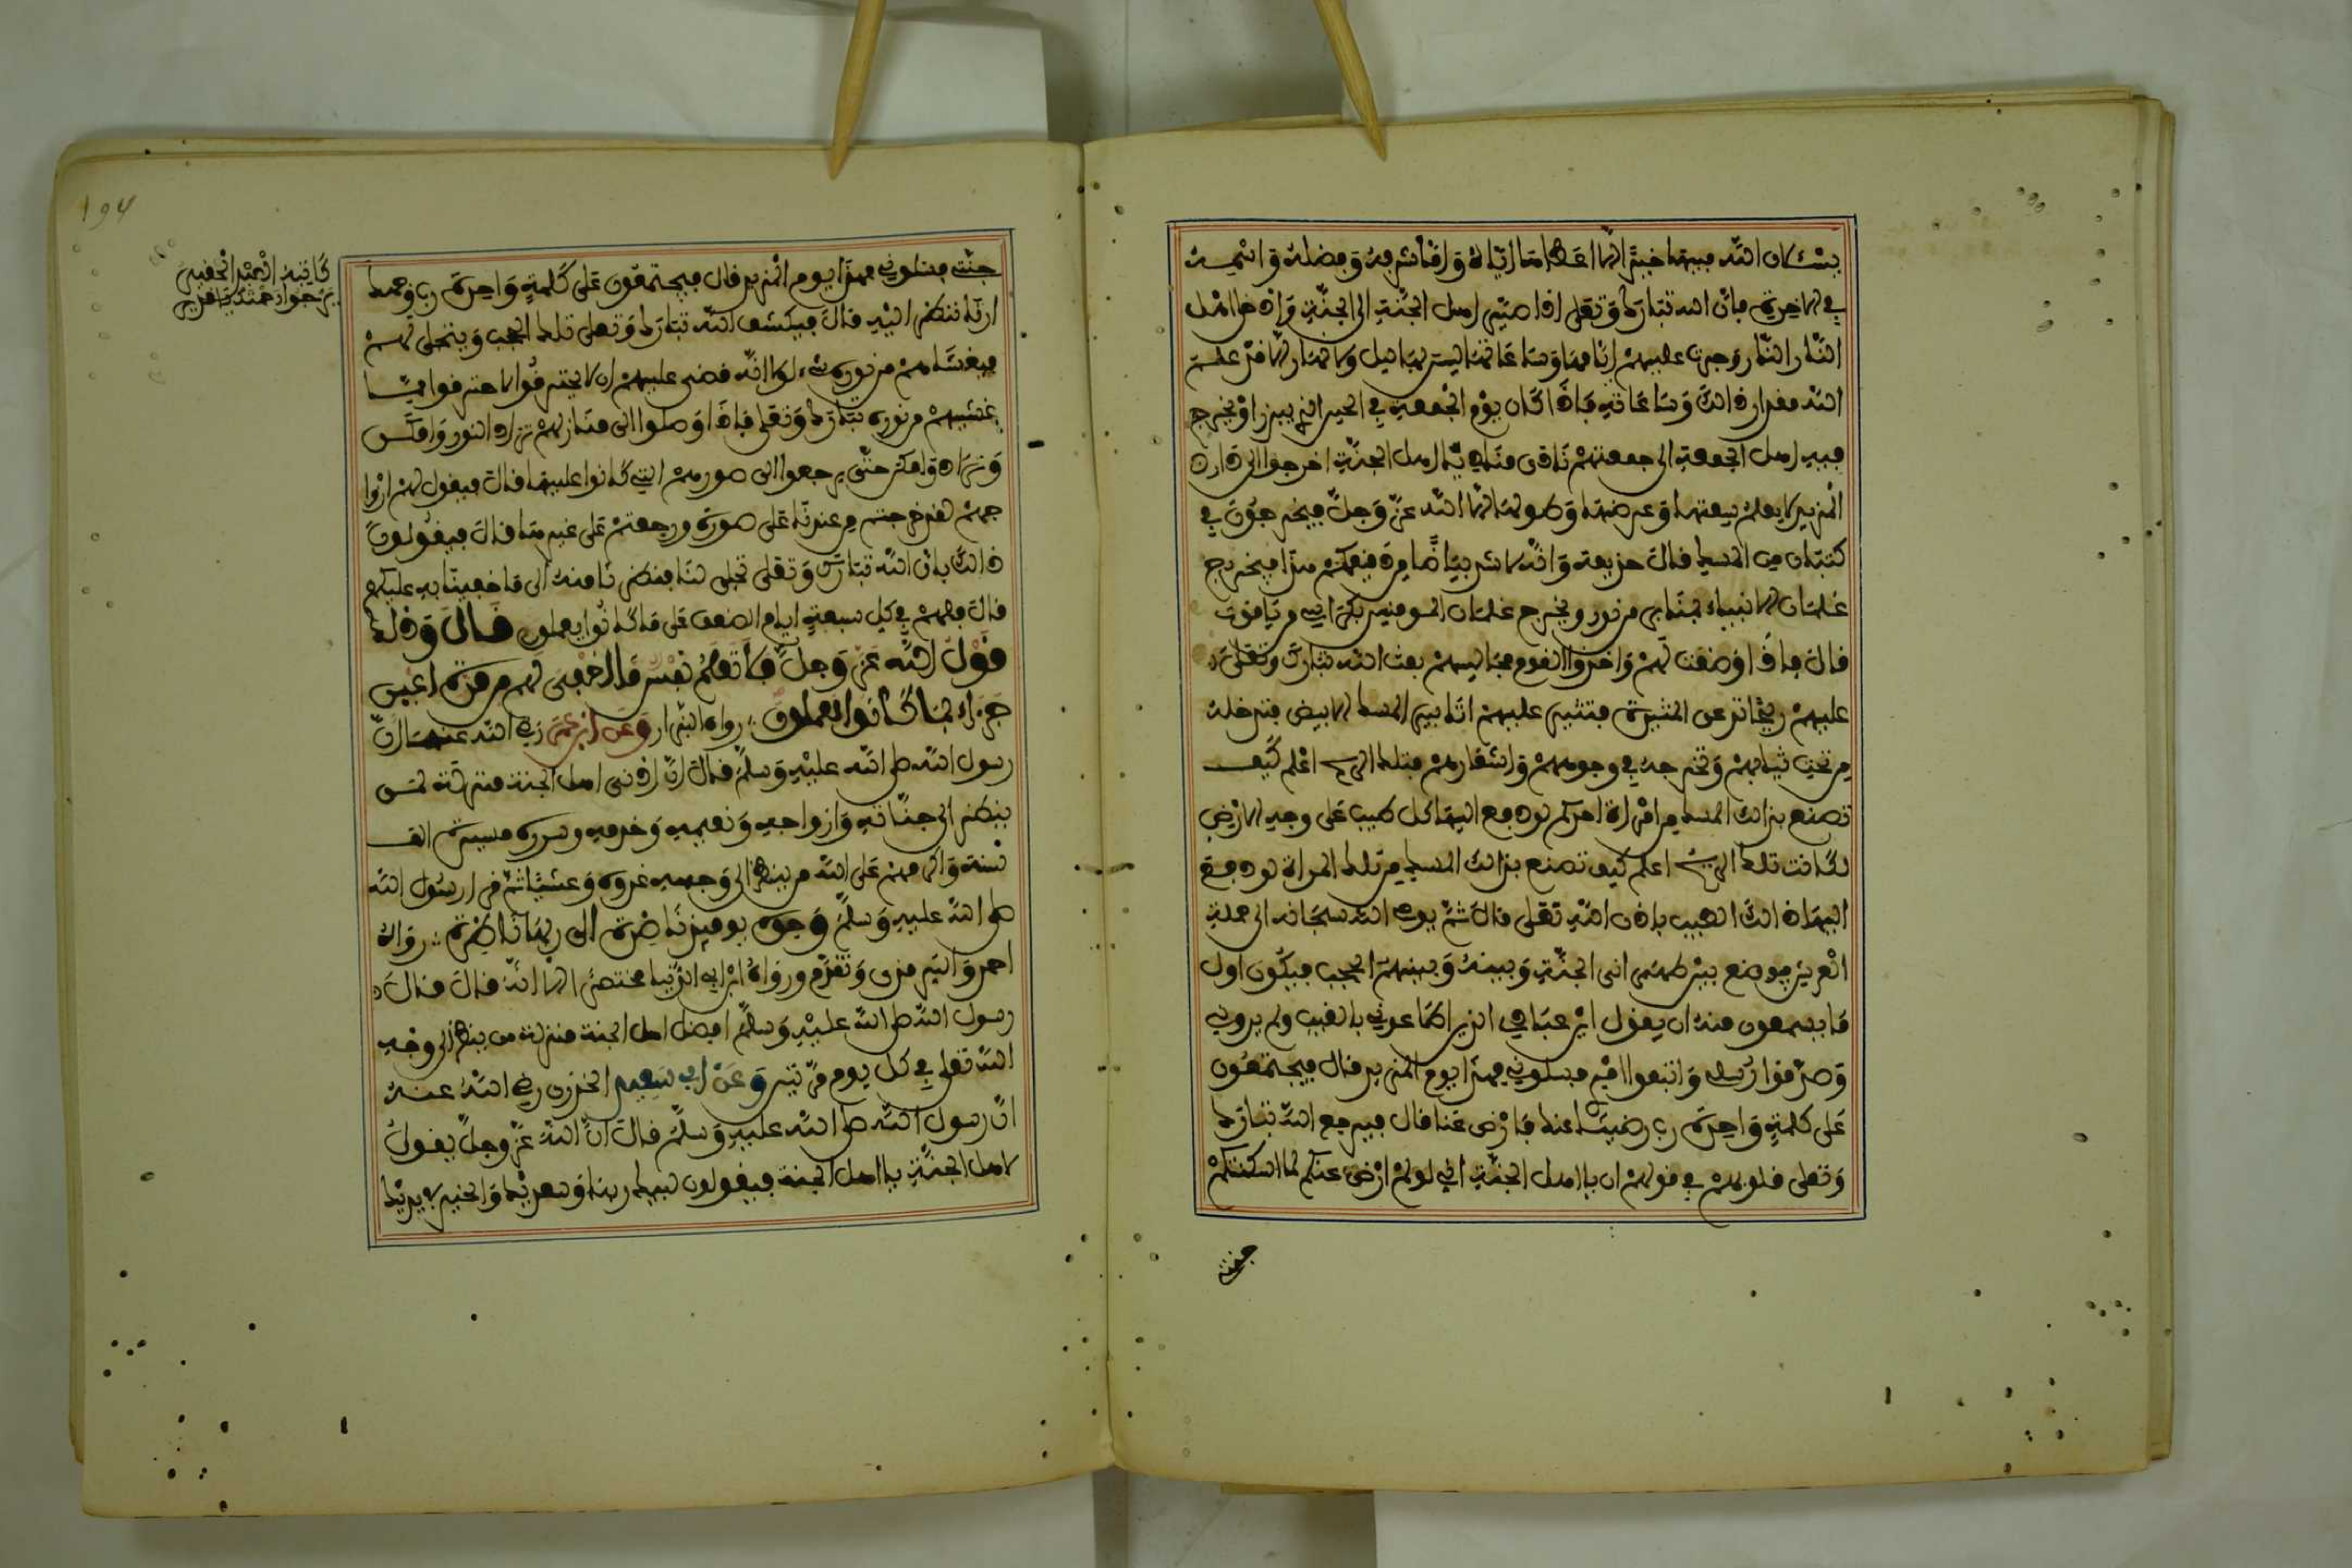 يسئلان الله فيها خيرا الا اعطاهما اياه واقتاش فيه وفضله وانهمه
في الاخرة فان الله تبارك وتعلى اذا صير اهل الجنة الى الجنة وادخل اهل
النار النار وجرت عليهم ايامها وساعاتها ليس بها ليل ولا نهار الا قد علم
الله مقدار ذالك وساعاته فاذا كان يوم الجمعة في الحين الذي يبرز او يخرج
فيه اهل الجمعة الى جمعتهم نادى مناد يا اهل الجنة اخرجوا الى دار
المزيد لا يعلم سعتها وعرضها وطولها الا الله عز وجل فيخرجون في
كثبان من المسك قال حذيفة وانه لاشد بياضا من دقيقكم هذا فيخرج
غلمان الانبياء بمنابر من نور ويخرج غلمان المومنين بكراسي من ياقوت
قال فاذا وضعت لهم واخذوا القوم مجالسهم بعث الله تبارك وتعلى
عليهم ريحا تدعى المثيرة فتثير عليهم اثابير المسك الابيض فتدخله
من تحت ثيابهم وتخرجه في وجوههم واشعارهم فتلك الريح اعلم كيف
تصنع بذالك المسك من امراة احدكم لو دفع اليها كل طيب على وجه الارض
لكانت تلك الريح اعلم كيف تصنع بذالك المسك من تلك المراة لو دفع
اليها ذالك الطيب باذن الله تعلى قال ثم يوحي الله سبحانه الى حملة
العرش فيوضع بين ظهرى الجنة وبينه وبينهم الحجب فيكون اول
ما يسمعون منه ان يقول اين عبادي الذين اطاعوني بالغيب ولم يروني
وصدقوا رسلي واتبعوا امري فسلوني فهذا يوم المزيد قال فيجتمعون
على كلمة واحدة رب رضينا عنك فارض عنا قال فيرجع الله تبارك
وتعلى في قولهم ان يا اهل الجنة اني لو لم ارض عنكم لما اسكنتكم
جنتي
جنتي فسلوني فهذا يوم المزيد قال فيجتمعون على كلمة واحدة رب وجهك
ارنا ننظر اليه قال فيكشف الله تبارك وتعلى تلك الحجب ويتجلى لهم
فيغشاهم من نوره شيء لولا انه قضى عليهم ان لا يحترقوا لاحترقوا مما
غشيهم من نوره تبارك وتعلى فاذا وصلوا الى منازلهم تراد النور وامكن
وتراد وامكن حتى يرجعوا الى صورهم التي كانوا عليها قال فيقول لهم ازوا
جهم لقد خرجتم من عندنا على صورة ورجعتم على غيرها قال فيقولون
ذالك بان الله تبارك وتعلى تجلى لنا فنظرنا منه الى ما خفينا به عليكم
قال فلهم في كل سبعة ايام الضعف على ما كانوا يعملون قال وذلك
قول الله عز وجل فلا تعلم نفس ما اخفي لهم من قرة اعين
جزاء بما كانوا يعملون رواه البزار وعن ابن عمر رضي الله عنهما ان
رسول الله صلى الله عليه وسلم قال ان ادنى اهل الجنة منزلة لمن
ينظر الى جنانه وازواجه ونعيمه وخدمه وسرره مسيرة الف
سنة واكرمهم على الله من ينظر الى وجهه غدوة وعشيا ثم قرا رسول الله
صلى الله عليه وسلم وجوه يومئذ ناضرة الى ربها ناظرة رواه
احمد والترمذي وتقدم ورواه ابن ابي الدنيا مختصرا الا انه قال قال
رسول الله صلى الله عليه وسلم افضل اهل الجنة منزلة من ينظر الى وجه
الله تعلى في كل يوم مرتين وعن ابي سعيد الخدري رضي الله عنه
ان رسول الله صلى الله عليه وسلم قال ان الله عز وجل يقول
لاهل الجنة يا اهل الجنة فيقولون لبيك ربنا وسعديك والخير بيديك